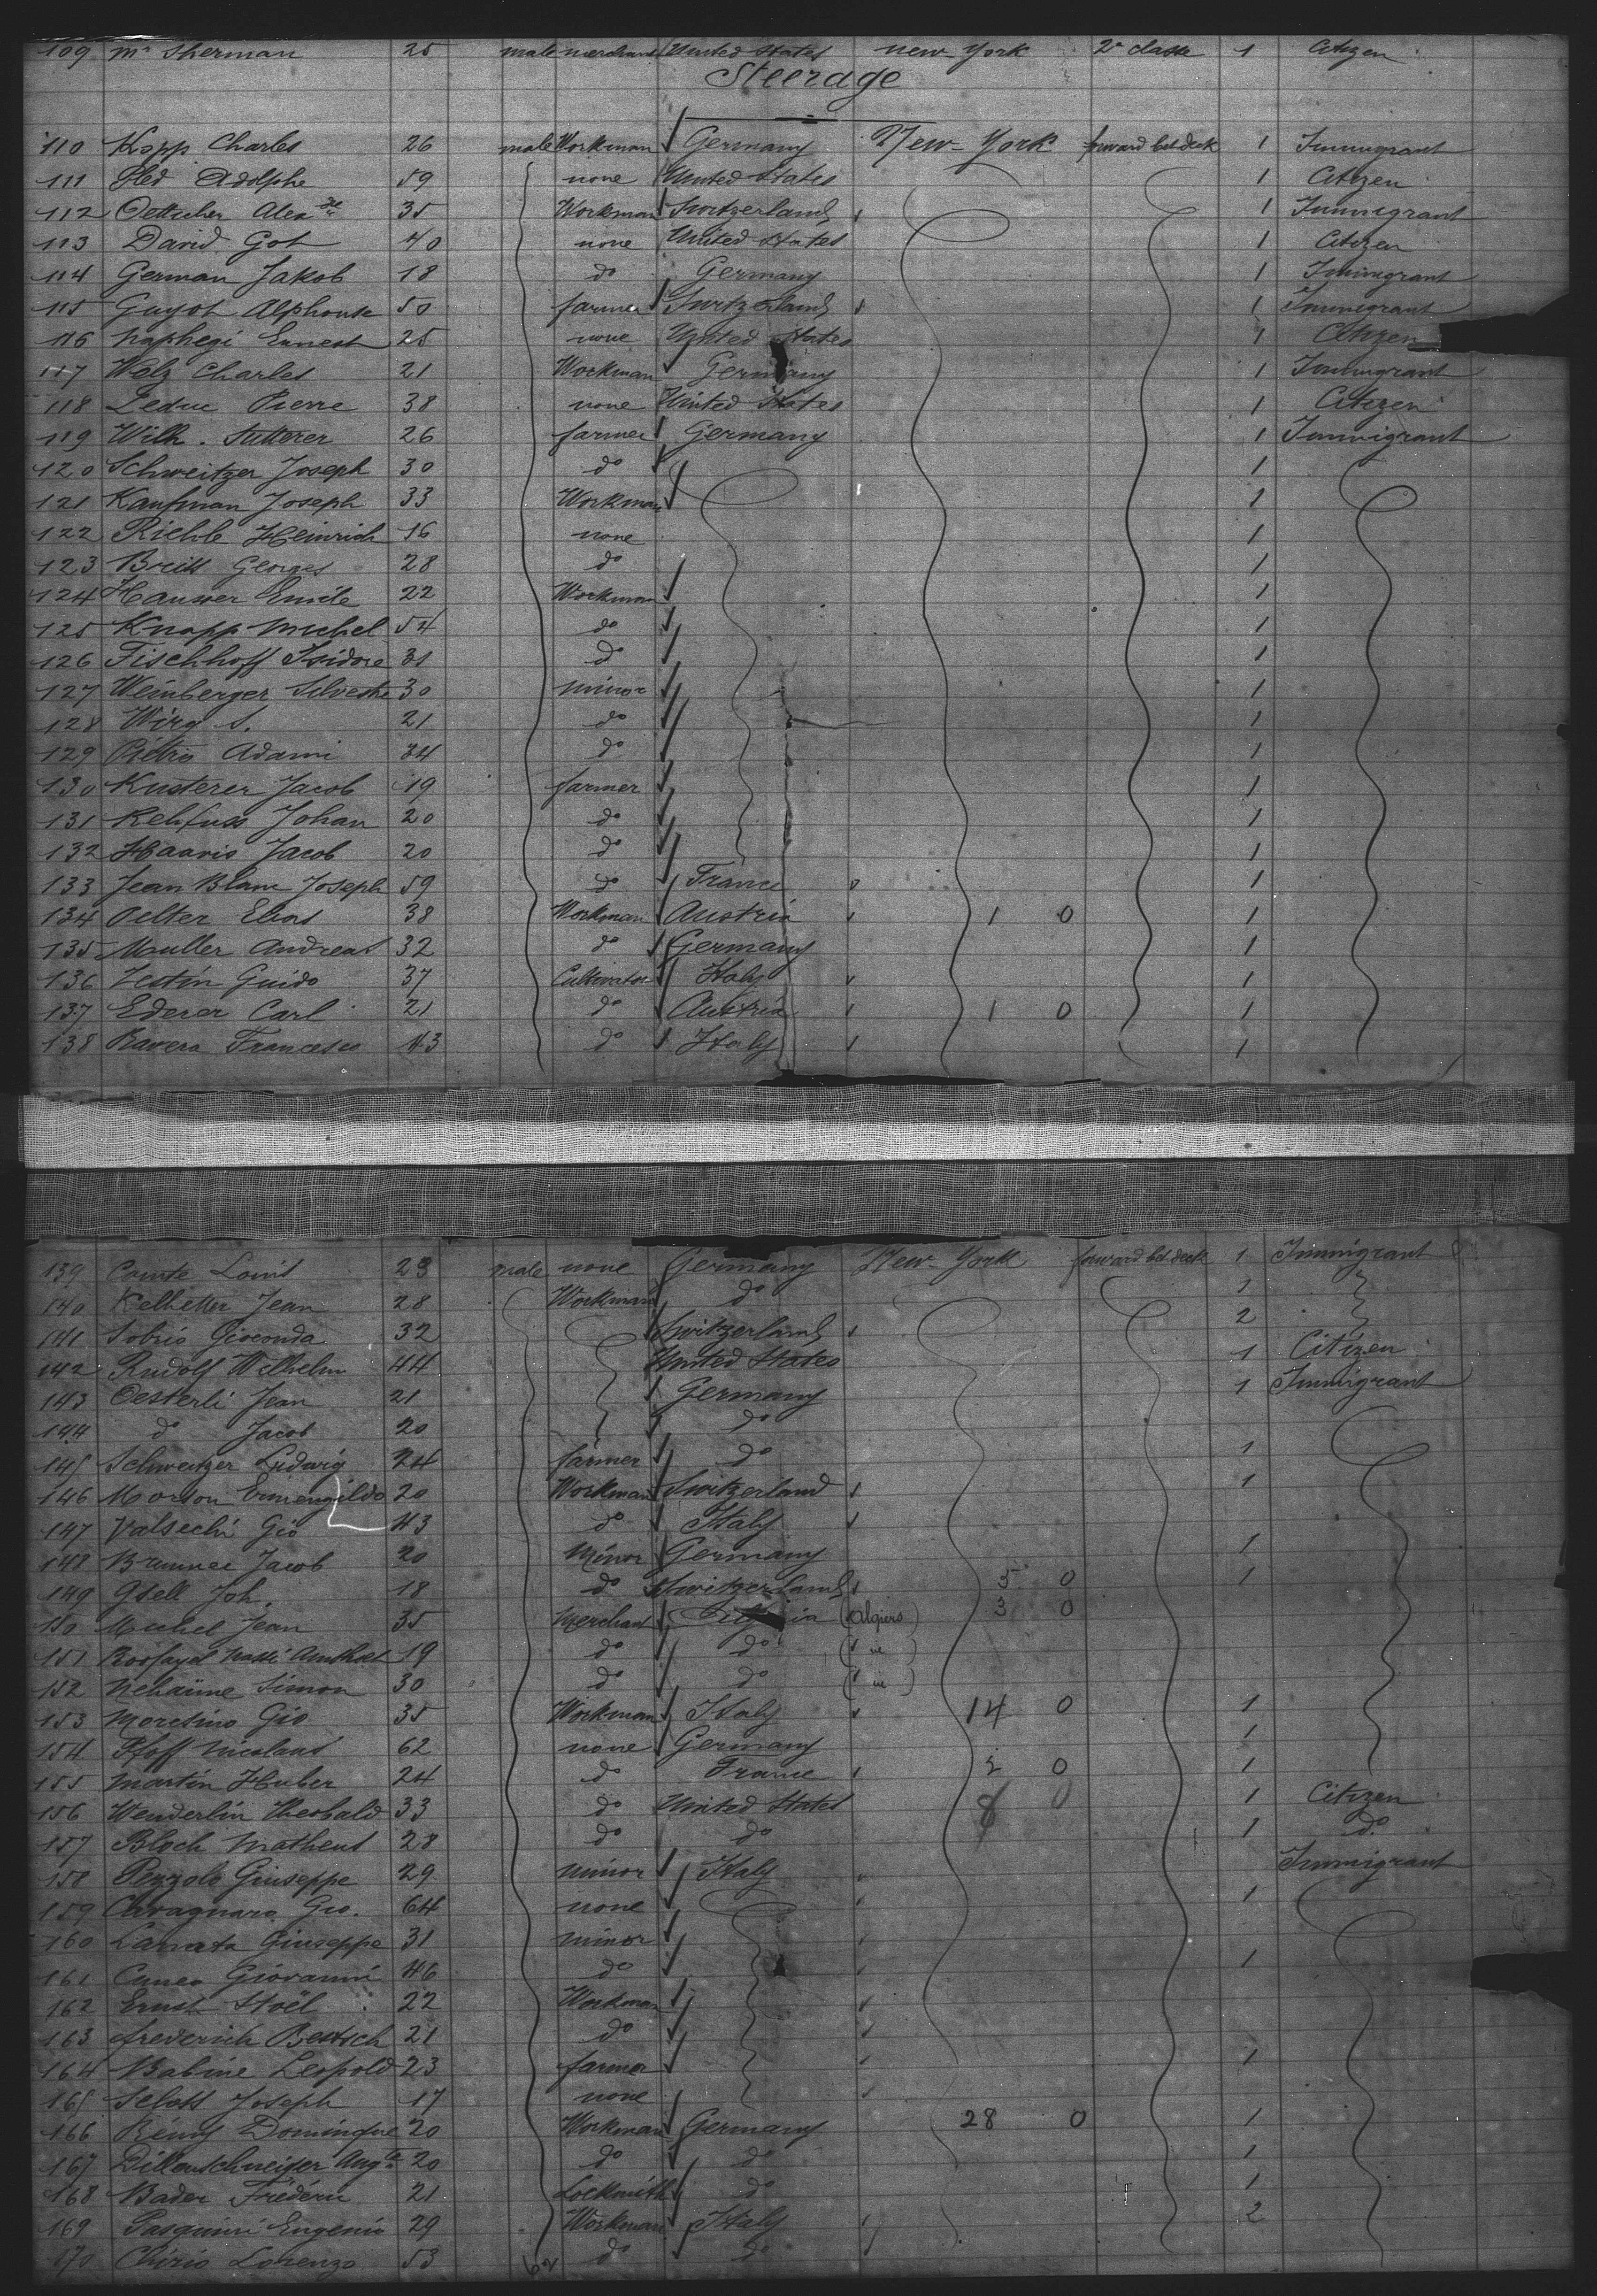 109 Mr Sherman 25 male merchant United States new York 2e classe 1 Citizen
Steerage
110 Kopp Charles 26 male Workman Germany New-York forward bet deck 1 Immigrant
111 Adolphe 59 none United States 1 Citizen
112 Oettscher Alex 35 Workman Switzerland 1 Immigrant
113 David Got 40 none United States 1 Citizen
114 German Jakob 18 do Germany 1 Immigrant
115 Guyot Alphonse 50 farmer Switzerland 1 Immigrant
116 Naphegi Ernest 25 none United States 1 Citizen
117 Walz Charles 21 Workman Germany 1 Immigrant
118 Leduc Pierre 38 none United States 1 Citizen
119 Wilh. Sutterer 26 farmer Germany 1 Immigrant
120 Schweitzer Joseph 30 do 1
121 Kaufman Joseph 33 Workman 1
122 Riehle Heinrich 16 none 1
123 Georges 28 do 1
124 Hausser Emile 22 Workman 1
125 Knapp Michel 54 do 1
126 Fischhoff Isidore 31 do 1
127 Weinberger Silvestre 30 minor 1
128 Wirg S. 21 do 1
129 Piétro Adami 34 do 1
130 Kusterer Jacob 19 farmer 1
131 Rehfuss Johan 20 do 1
132 Jacob 20 do 1
133 Jean Blanc Joseph 59 do France 1
134 Oelter Elias 38 Workman Austria 1 0 1
135 Muller Andreas 32 do Germany 1
136 Guido 37 Cultivator Italy 1
137 Ederer Carl 21 do Austria 1 0 1
138 Ravera Francesco 43 do Italy 1
139 Comte Louis 23 male none Germany New-York forward bet deck 1 Immigrant
140 Kelhetter Jean 28 Workman do 1
141 Sobrio Gioconda 32 Switzerland 2
142 Rudolf Wilhelm 44 United States 1 Citizen
143 Oesterli Jean 21 Germany 1 Immigrant
144 do Jacob 20 do
145 Schweitzer Ludwig 24 farmer do 1
146 Ermengildo 20 Workman Switzerland 1
147 Valsechi Gio 43 do Italy
148 Jacob 20 Minor Germany 1
149 Gsell Joh. 18 do Switzerland 5 0 1
150 Michel Jean 35 Merchant (Algiers) 3 0
151 19 do do
152 Nehaïme Simon 30 do do
153 Gio 35 Workman Italy 14 0 1
154 Pfaff Nicolaus 62 none Germany 1
155 Martin Huber 24 do France 2 0 1
156 Wenderlin Theobald 33 do United States 8 0 1 Citizen
157 Bloch Matheus 28 do do 1 do.
158 Pezzolo Giuseppe 29 minor Italy Immigrant
159 Cavagnaro Gio. 64 none 1
160 Giuseppe 31 minor
161 Cuneo Giovanni 46 do 1
162 Ernst Stoël 22 Workman
163 frederich Bertsch 21 do
164 Babine Leopold 23 farmer 1
165 Joseph 17 none
166 Rémy Dominique 20 Workman Germany 28 0 1
167 Dillenschneider Aug 20 do do 1
168 Bader Fréderic 21 Lockmith do 1
169 Pasquini Eugenio 29 Workman Italy 2
170 Chirio Lorenzo 53 62 do do